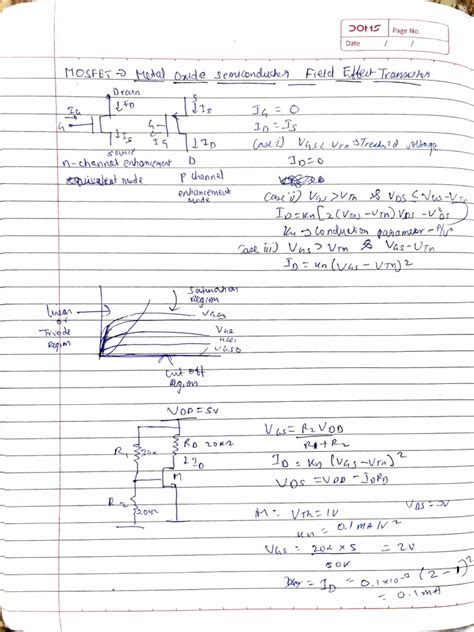 DOMS
Page No.
Date / /
MOSFET → Metal Oxide semiconductor Field Effect Transistor
Drain
I_D
I_G
G
source
n-channel enhancement
mode
S
I_S
G
I_D
D
P channel
enhancement
Mode
I_G = 0
I_D = I_S
Case i) V_GS < V_Tn → voltage
I_D = 0
Case ii) V_GS > V_Tn & V_DS ≤ V_GS - V_Tn
I_D = Kn [2 (V_GS - V_Tn) V_DS - V²_DS]
Kn → Conduction parameter - A/V²
Case iii) V_GS > V_Tn & V_GS - V_Tn
I_D = Kn (V_GS - V_Tn)²
Linear
or
Triode
Region
Saturation
Region
V_GS3
V_GS0
Cut off
Region
V_DD = 5V
R_1
R_D 20kΩ
I_D
M
R_2
20kΩ
V_GS = R_2 V_DD
R_1 + R_2
I_D = Kn (V_GS - V_Tn)²
V_DS = V_DD - I_D R_D
V_Th = 1V
Kn = 0.1 mA/V²
V_GS = 20K × 5 = 2V
50K
I_D = 0.1×10⁻³ (2 - 1)²
= 0.1mA